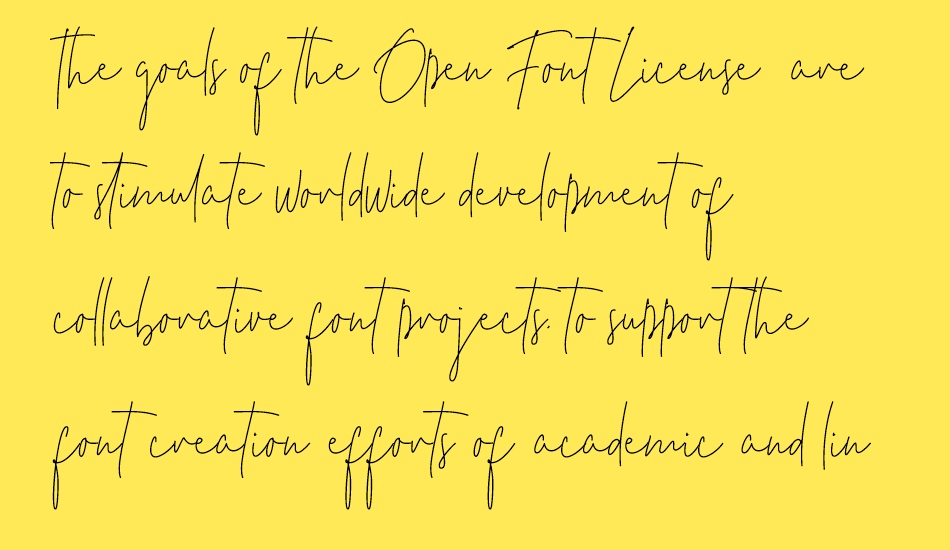 the goals of the Open Font License are
to stimulate worldwide development of
collaborative font projects. to support the
font creation efforts of academic and lin